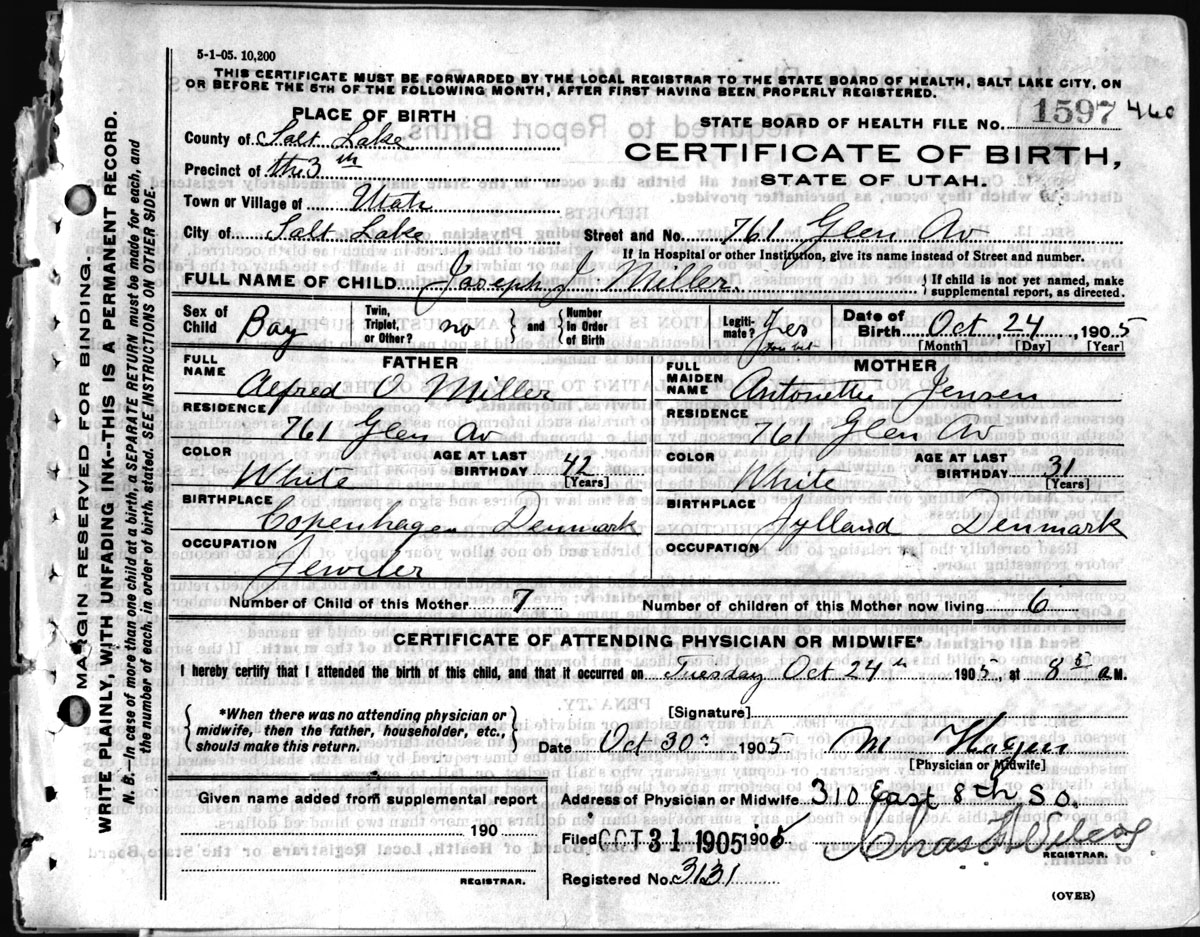 5-1-05. 10,200
THIS CERTIFICATE MUST BE FORWARDED BY THE LOCAL REGISTRAR TO THE STATE BOARD OF HEALTH, SALT LAKE CITY, ON
OR BEFORE THE 5TH OF THE FOLLOWING MONTH, AFTER FIRST HAVING BEEN PROPERLY REGISTERED.
PLACE OF BIRTH
STATE BOARD OF HEALTH FILE NO. 1597 460
County of Salt Lake
CERTIFICATE OF BIRTH,
Precinct of the 3th
STATE OF UTAH.
Town or Village of Utah
City of Salt Lake Street and No. 761 Glen Av
If in Hospital or other Institution, give its name instead of Street and number.
FULL NAME OF CHILD Joseph J Miller. { If child is not yet named, make supplemental report, as directed.
Sex of Child Boy Twin, Triplet, or Other? no } and { Number in Order of Birth Legiti-mate? Yes Date of Birth Oct 24, 1905
[Month] [Day] [Year]
FATHER
FULL NAME Alfred O Miller
RESIDENCE
761 Glen Av
COLOR White AGE AT LAST BIRTHDAY 42 [Years]
BIRTHPLACE
Copenhagen Denmark
OCCUPATION
Jewiler
MOTHER
FULL MAIDEN NAME Antonette Jensen
RESIDENCE
761 Glen Av
COLOR White AGE AT LAST BIRTHDAY 31 [Years]
BIRTHPLACE
Jylland Denmark
OCCUPATION
Number of Child of this Mother 7 Number of children of this Mother now living 6
CERTIFICATE OF ATTENDING PHYSICIAN OR MIDWIFE*
I hereby certify that I attended the birth of this child, and that it occurred on Tuesday Oct 24th 1905, at 8 5 A M.
{ *When there was no attending physician or midwife, then the father, householder, etc., should make this return. }
[Signature]
Date Oct 30th 1905 M
[Physician or Midwife]
Given name added from supplemental report
190
REGISTRAR.
Address of Physician or Midwife 310 East 8th So.
Filed OCT 31 1905 1905
REGISTRAR.
Registered No. 3131
(OVER)
MARGIN RESERVED FOR BINDING.
WRITE PLAINLY, WITH UNFADING INK--THIS IS A PERMANENT RECORD.
N. B.—In case of more than one child at a birth, a SEPARATE RETURN must be made for each, and
the number of each, in order of birth, stated. SEE INSTRUCTIONS ON OTHER SIDE.